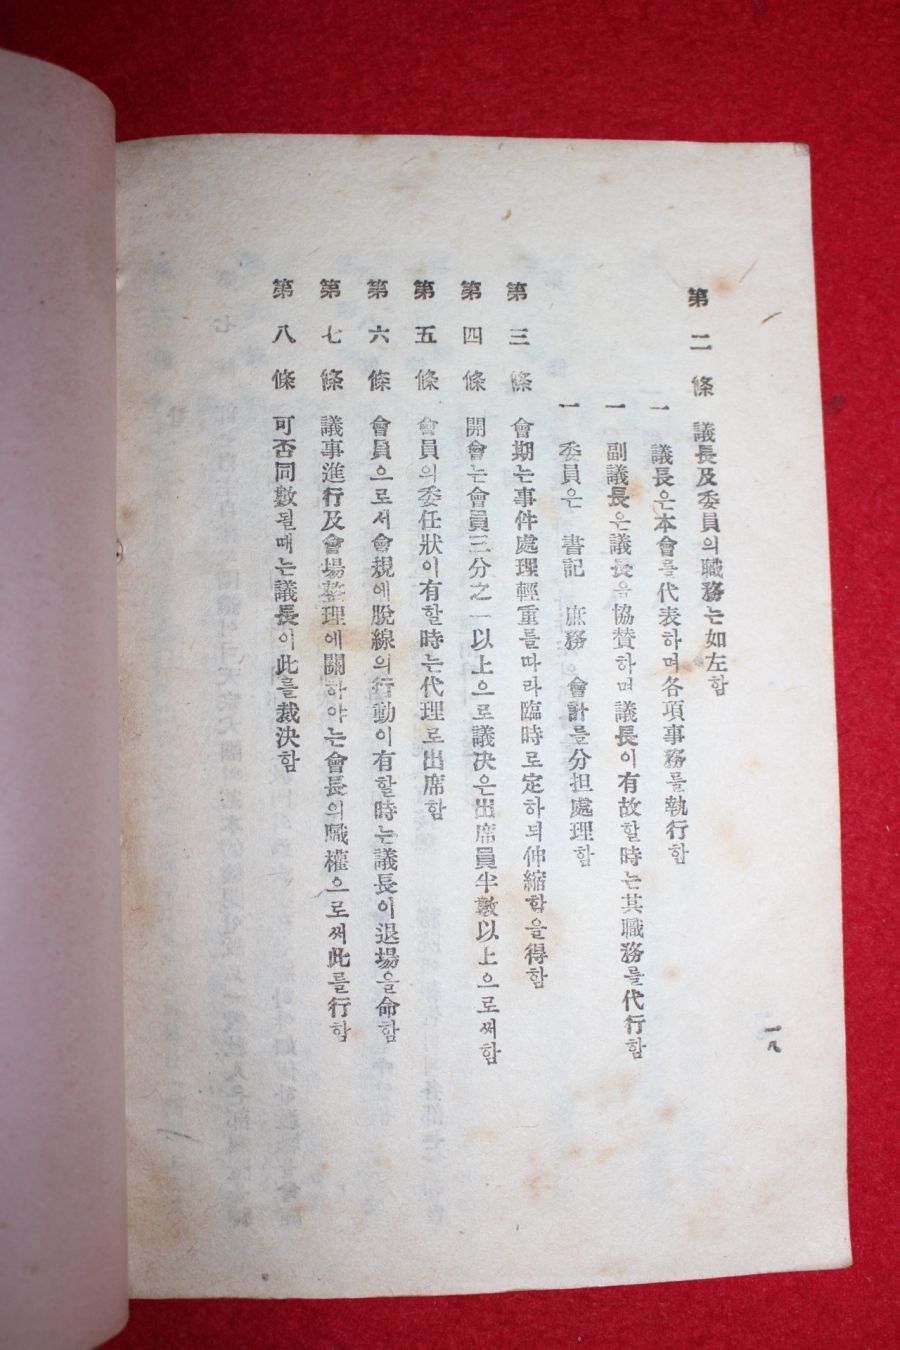 第二條 議長及委員의職務는如左함
一 議長은本會를代表하며各項事務를執行함
一 副議長은議長을協贊하며議長이有故할時는其職務를代行함
一 委員은 書記 庶務 會計를分担處理함
第三條 會期는事件處理輕重를따라臨時로定하되伸縮함을得함
第四條 開會는會員三分之一以上으로議决은出席員半數以上으로써함
第五條 會員의委任狀이有할時는代理로出席함
第六條 會員으로서會規에脫線의行動이有할時는議長이退場을命함
第七條 議事進行及會場整理에關하야는會長의職權으로써此를行함
第八條 可否同數될때는議長이此를裁决함
一八